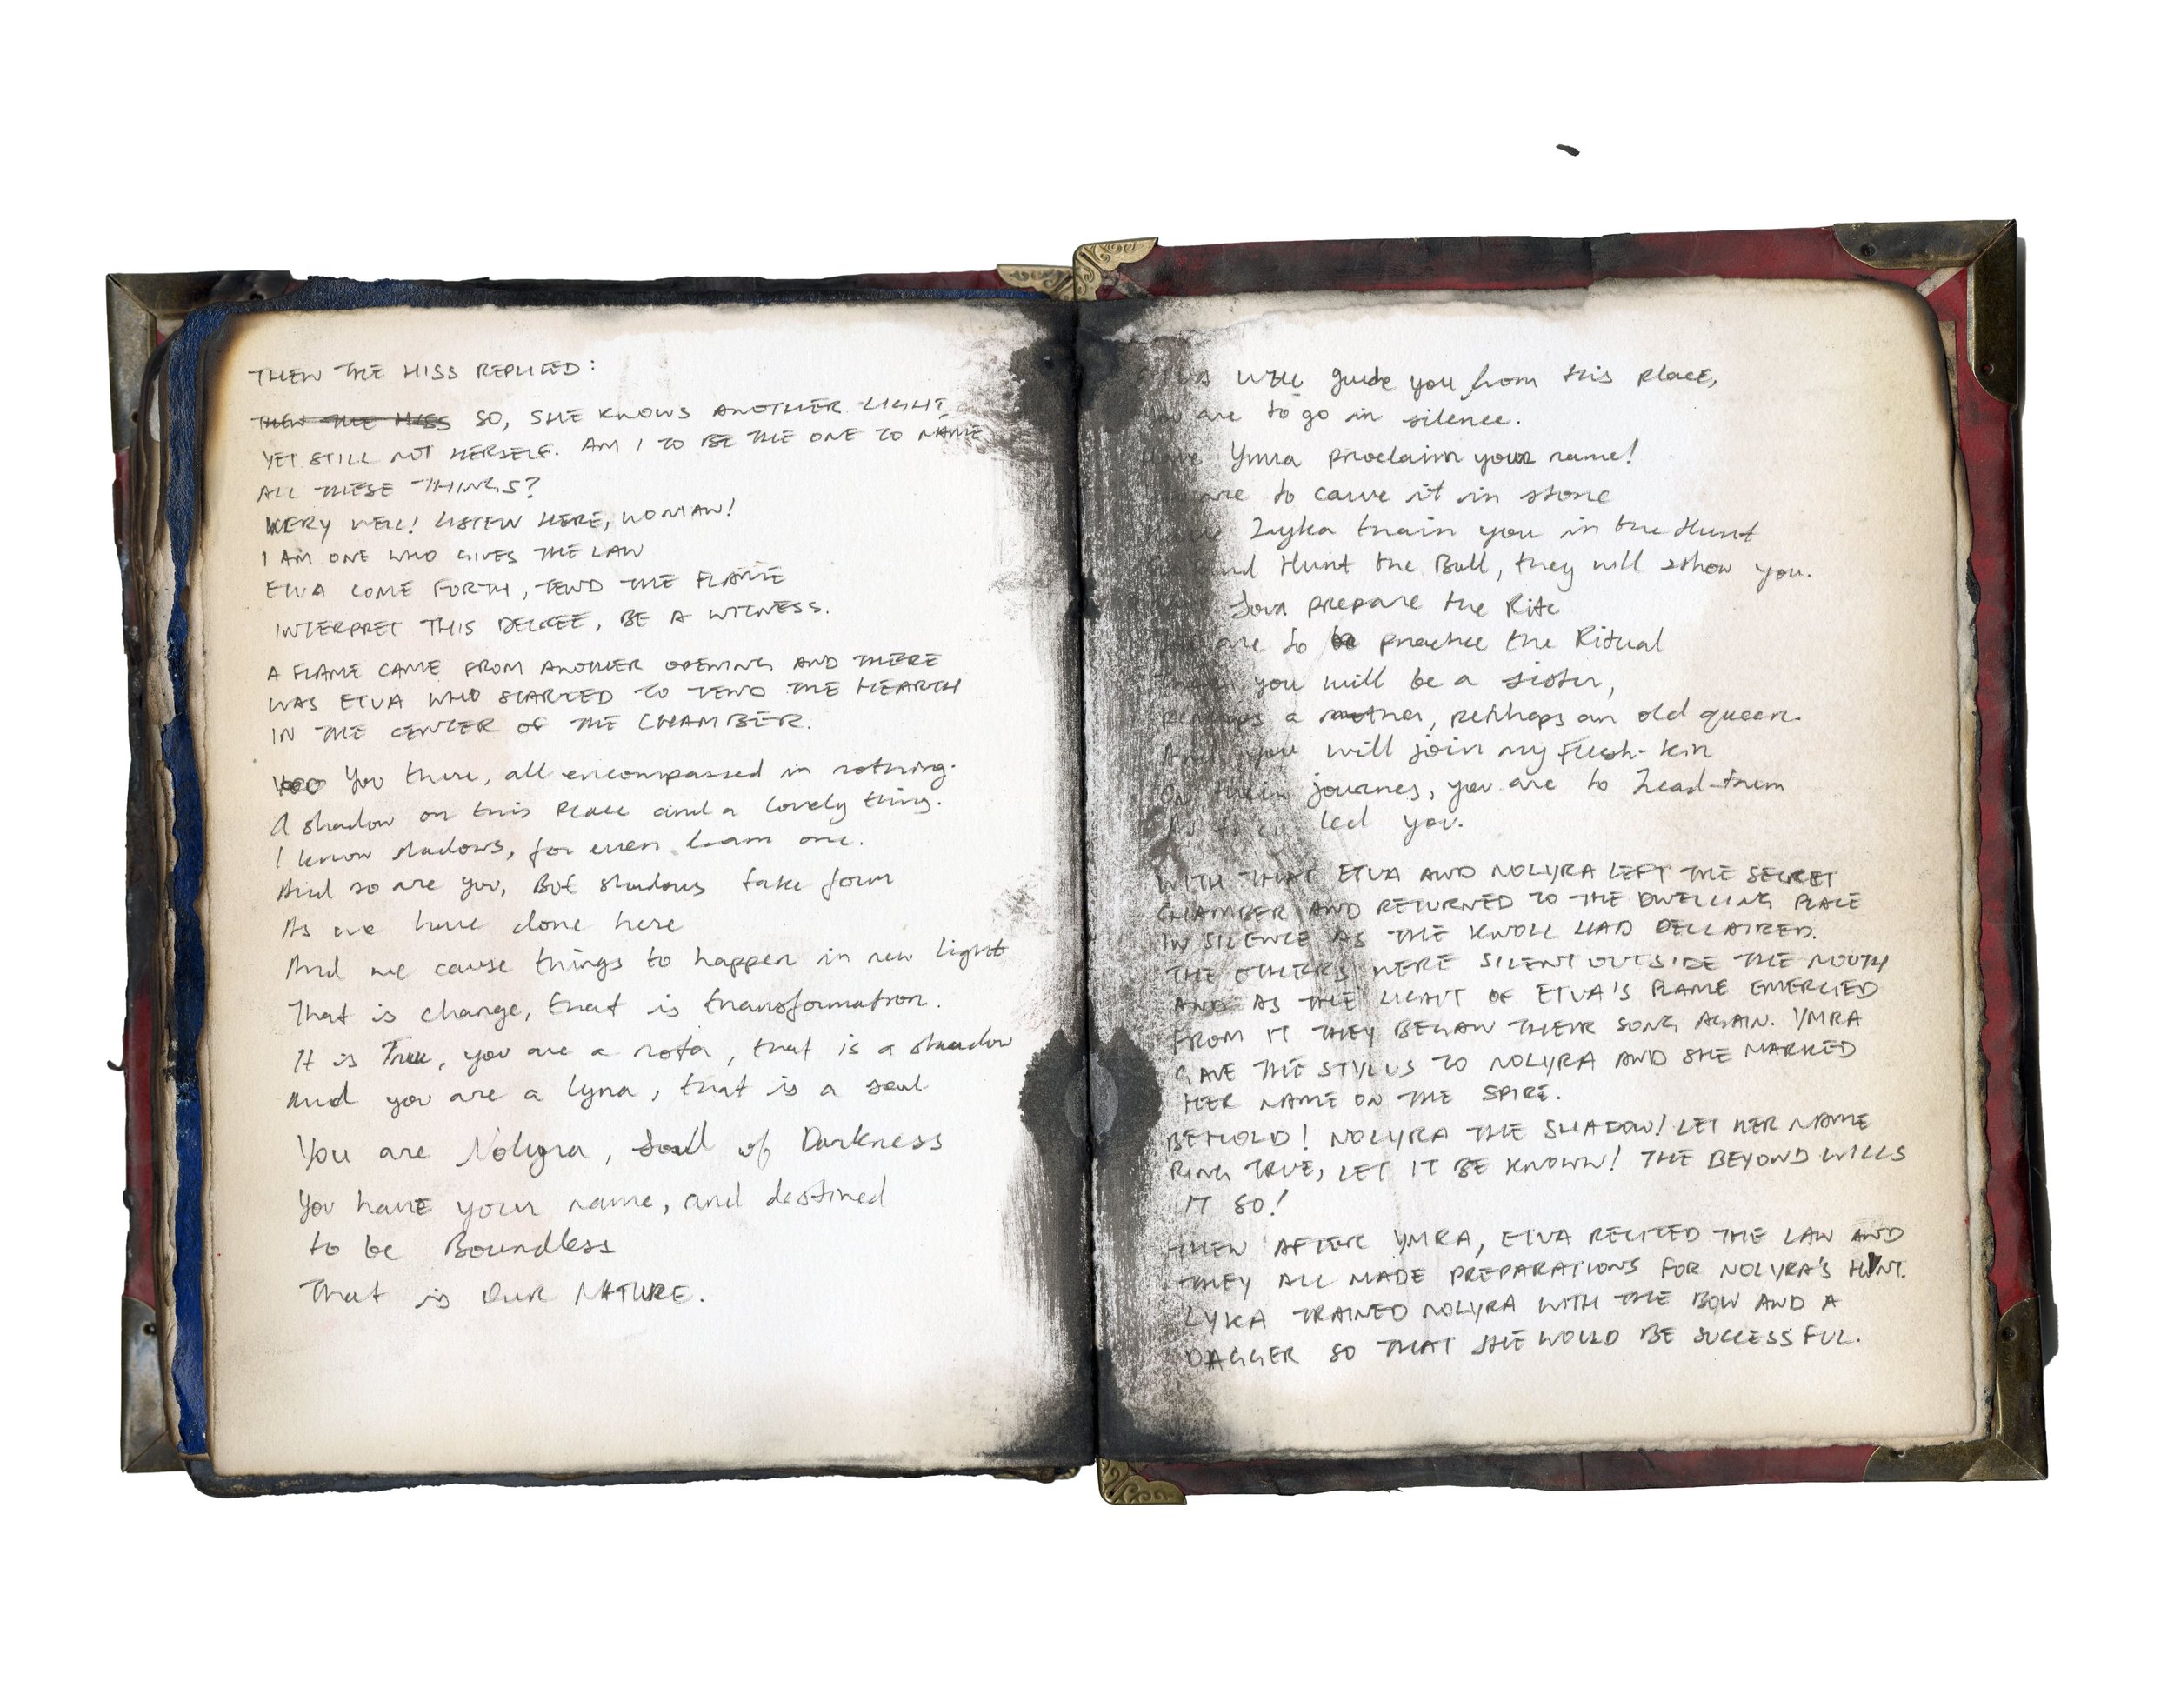 THEN THE HISS REPLIED:
THEN THE HISS SO, SHE KNOWS ANOTHER LIGHT
YET STILL NOT HERSELF. AM I TO BE THE ONE TO NAME
ALL THESE THINGS?
VERY WELL! LISTEN HERE, WOMAN!
I AM ONE WHO GIVES THE LAW
ETVA COME FORTH, TEND THE FLAME
INTERPRET THIS DECREE, BE A WITNESS.
A FLAME CAME FROM ANOTHER OPENING AND THERE
WAS ETVA WHO STARTED TO TEND THE HEARTH
IN THE CENTER OF THE CHAMBER.
You there, all encompassed in nothing.
A shadow on this Place and a lovely thing.
I know shadows, for even I am one.
And so are you, But shadows take form
As we have done here
And we cause things to happen in new light
That is change, that is transformation.
It is True, you are a nota, that is a shadow
And you are a lyra, that is a soul
You are Nolyra, Soul of Darkness
You have your name, and destined
to be Boundless
That is OUR NATURE.
ETVA will guide you from this place,
You are to go in silence.
Have Ymra proclaim your name!
You are to carve it in stone
Have Lyka train you in the Hunt
and Hunt the Bull, they will show you.
prepare the Rite
You are to practice the Ritual
Then you will be a sister,
perhaps a mother, perhaps an old queen.
And you will join my Flesh-kin
On their journey, you are to lead them
As they led you.
WITH THAT ETVA AND NOLYRA LEFT THE SECRET
CHAMBER AND RETURNED TO THE DWELLING PLACE
IN SILENCE AS THE KNOLL HAD DECLAIRED.
THE OTHERS WERE SILENT OUTSIDE THE MOUTH
AND AS THE LIGHT OF ETVA'S FLAME EMERGED
FROM IT THEY BEGAN THEIR SONG AGAIN. YMRA
GAVE THE STYLUS TO NOLYRA AND SHE MARKED
HER NAME ON THE SPIRE.
BEHOLD! NOLYRA THE SHADOW! LET HER NAME
RING TRUE, LET IT BE KNOWN! THE BEYOND WILLS
IT SO!
THEN AFTER YMRA, ETVA RECITED THE LAW AND
THEY ALL MADE PREPARATIONS FOR NOLYRA'S HUNT.
LYKA TRAINED NOLYRA WITH THE BOW AND A
DAGGER SO THAT SHE WOULD BE SUCCESSFUL.